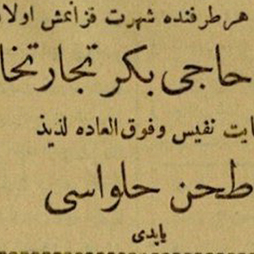 هر طرفنده شهرت قزانمش اولا
حاجی بكر تجار تخا
ايت نفيس وفوق العاده لذيذ
طحن حلواسی
يابدی